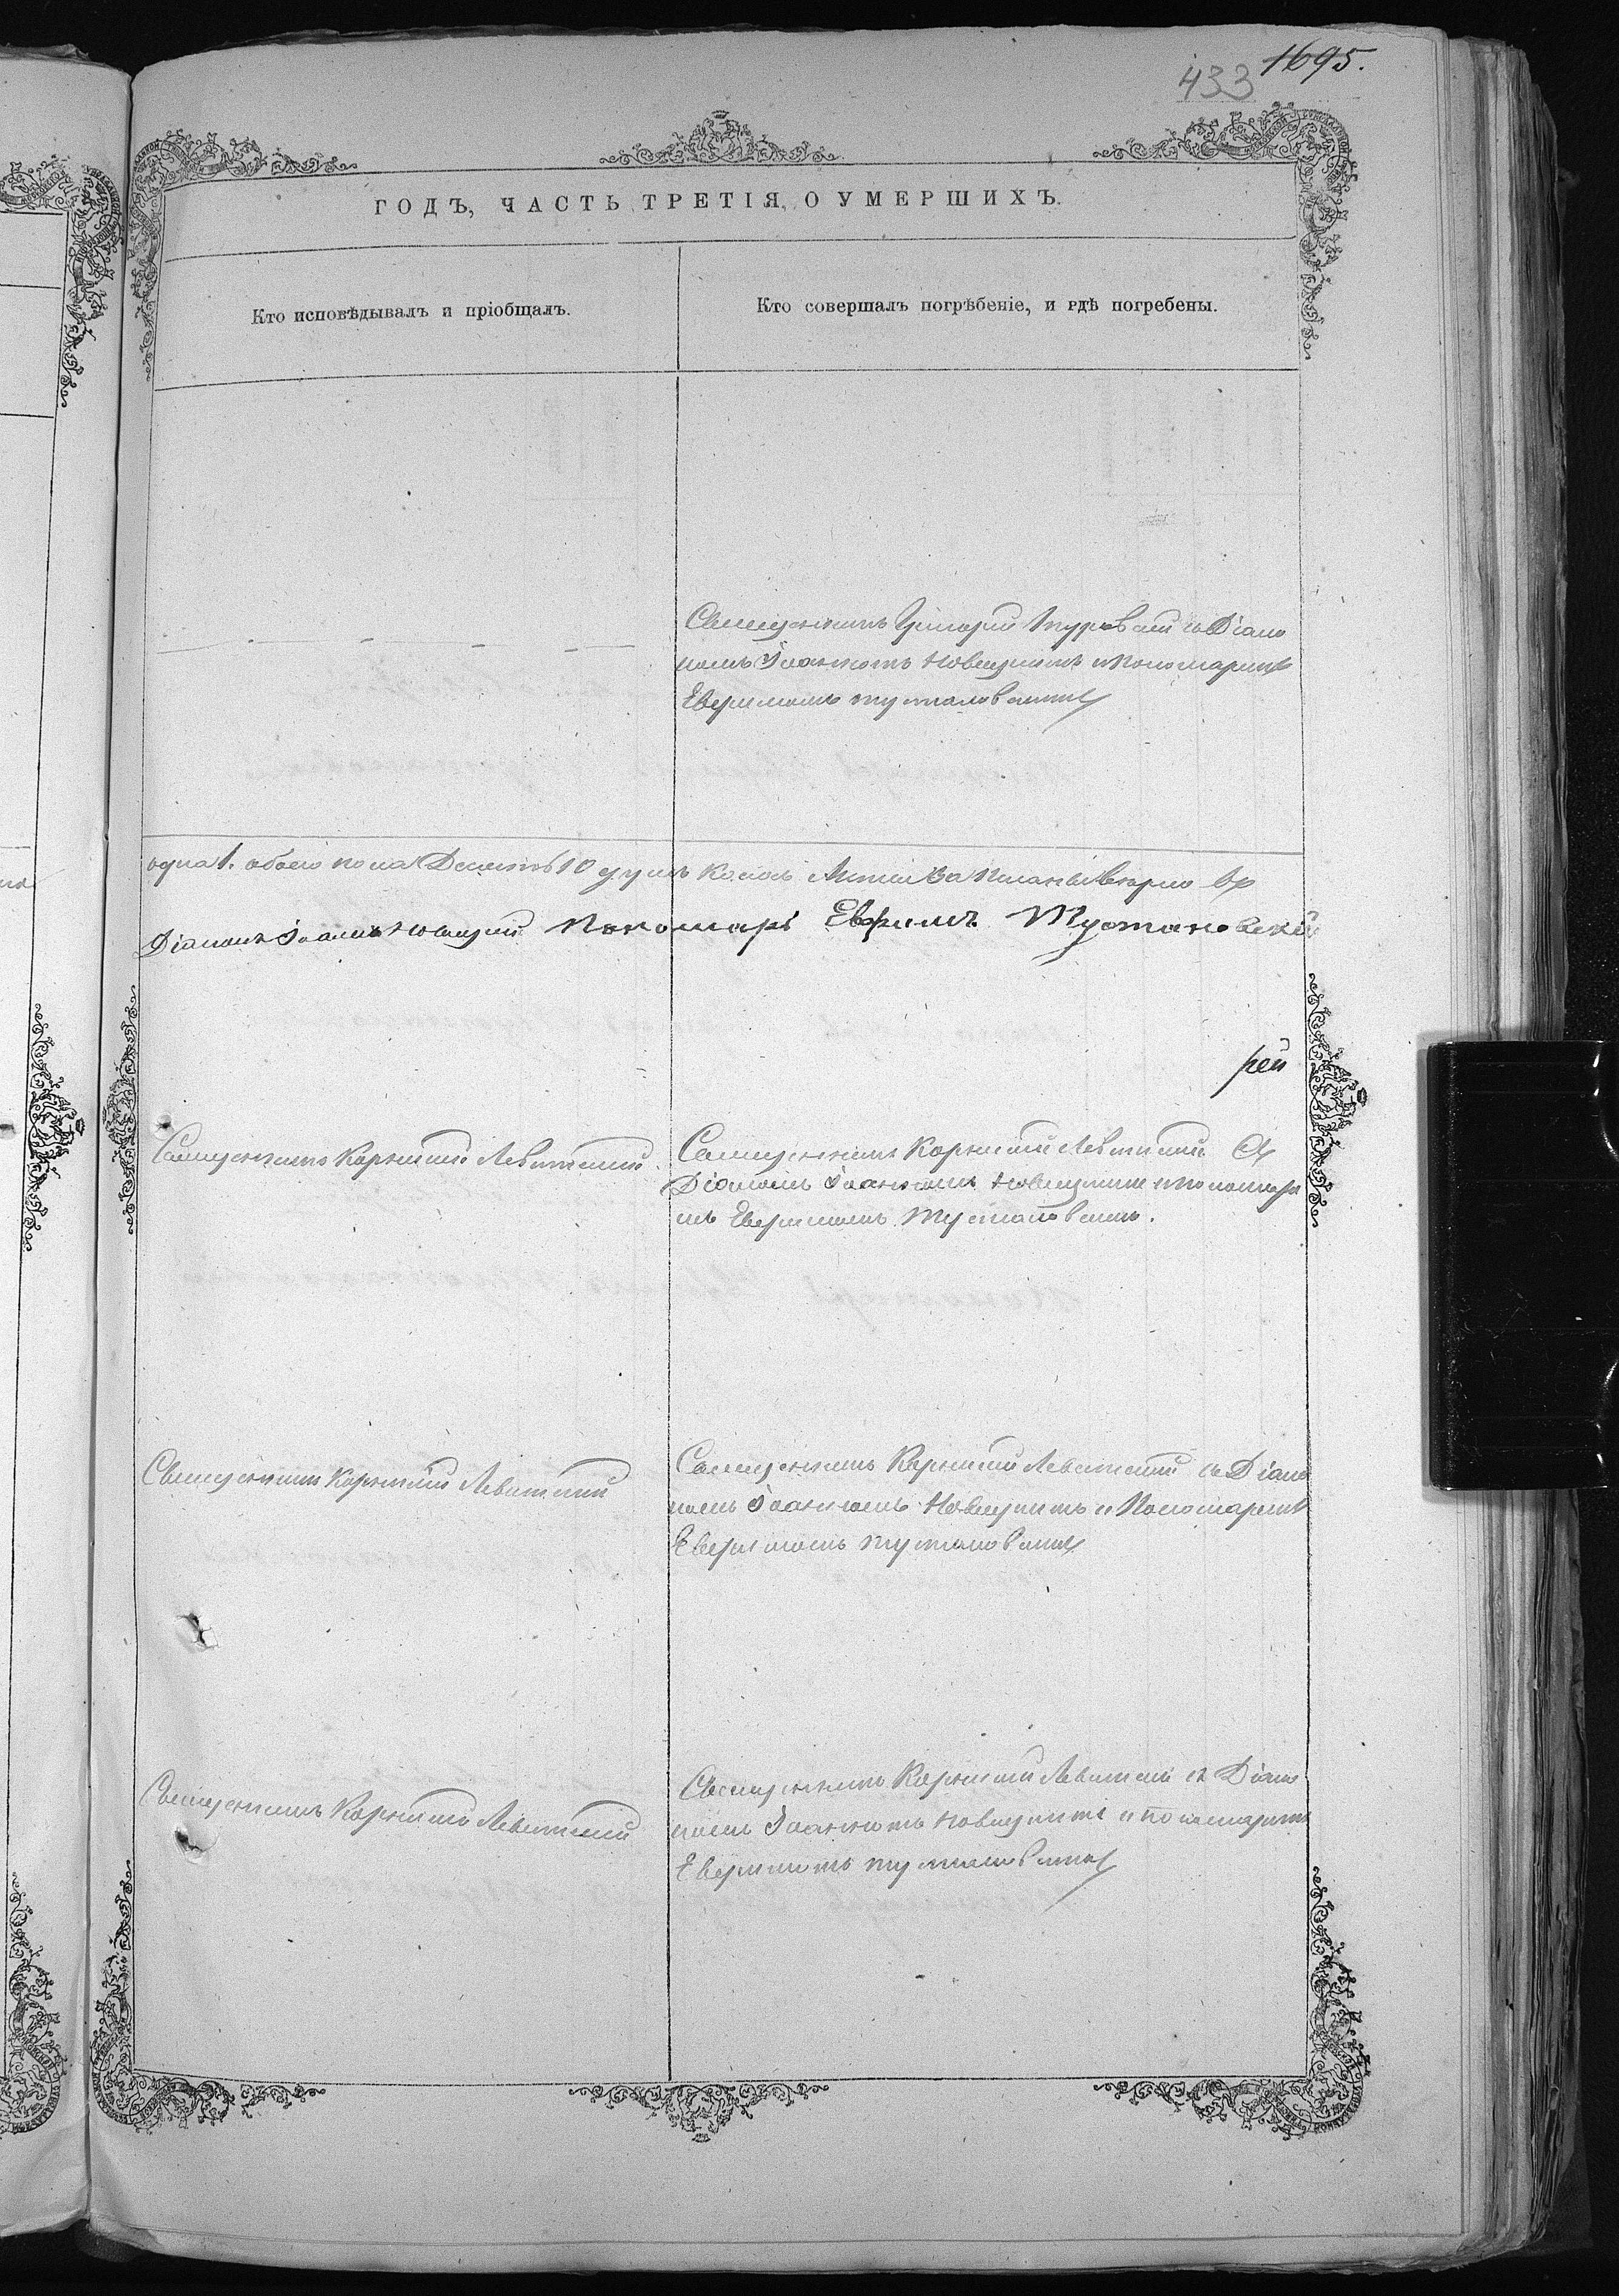 1695.
433
ГОДЪ, ЧАСТЬ ТРЕТІЯ, О УМЕРШИХЪ.
Кто исповѣдывалъ и пріобщалъ.
Кто совершалъ погрѣбеніе, и гдѣ погребены.
Священникъ Григорій Туровскій съ Діако
номъ Іоанномъ Новицкимъ и Пономаремъ
Евфимомъ Тустановскимъ
одна 1. обоего пола Десять 10 душъ
Діаконъ Іоаннъ Новицкій Пономарь Евфимъ Тустановскій
рей
Священникъ Корнилій Левитскій
Священникъ Корнилій Левитскій Съ
Діакономъ Іоанномъ Новицкимъ и Пономаре
мъ Евфимомъ Тустановскимъ.
Священникъ Корнилій Левитскій
Священникъ Корнилій Левитскій съ Діако
номъ Іоанномъ Новицкимъ и Пономаремъ
Евфимомъ Тустановскимъ
Священникъ Корнилій Левитскій
Священникъ Корнилій Левитскій съ Діако
номъ Іоанномъ Новицкимъ и пономаремъ
Евфимомъ Тустановскимъ